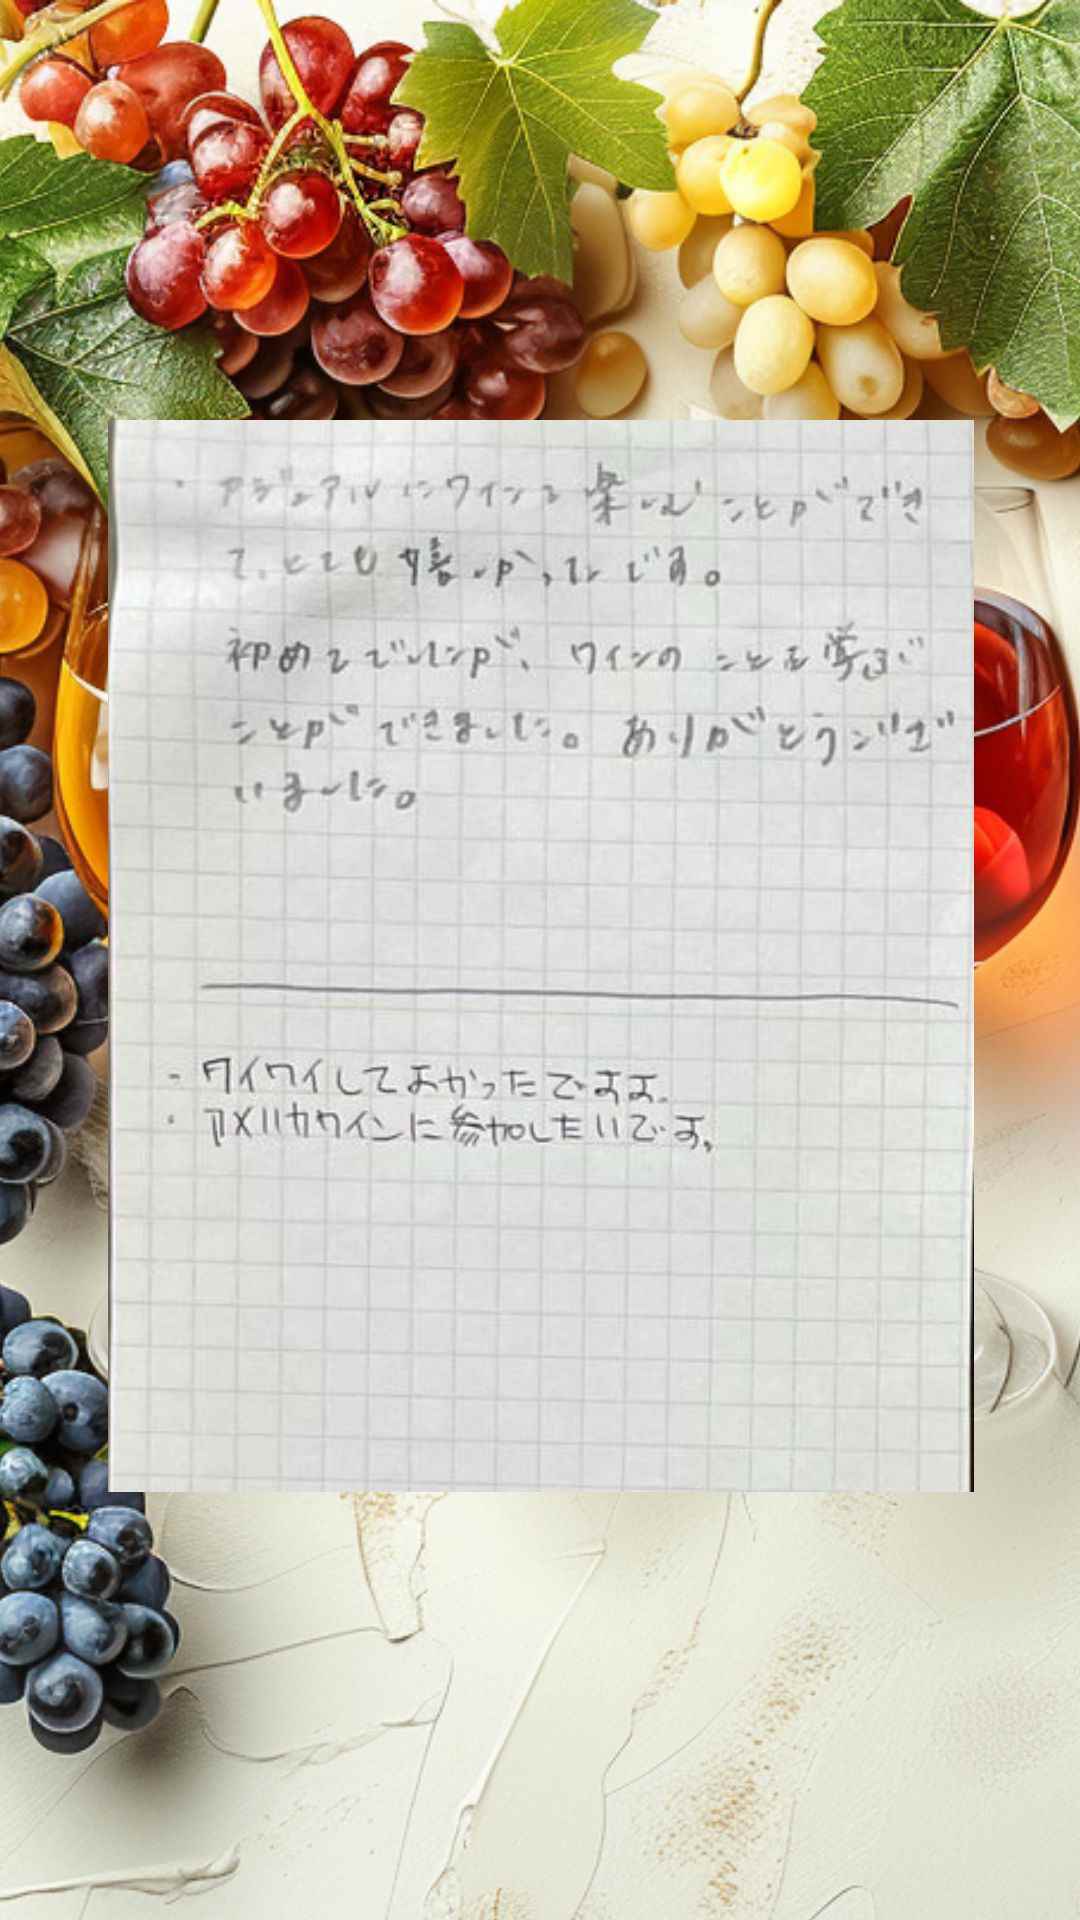 ・カジュアルにワインを楽しむことができ
て、とても嬉しかったです。
初めてでしたが、ワインのことを学ぶ
ことができました。ありがとうござ
いました。
- ワイワイしてよかったですよ。
・アメリカワインに参加したいです。